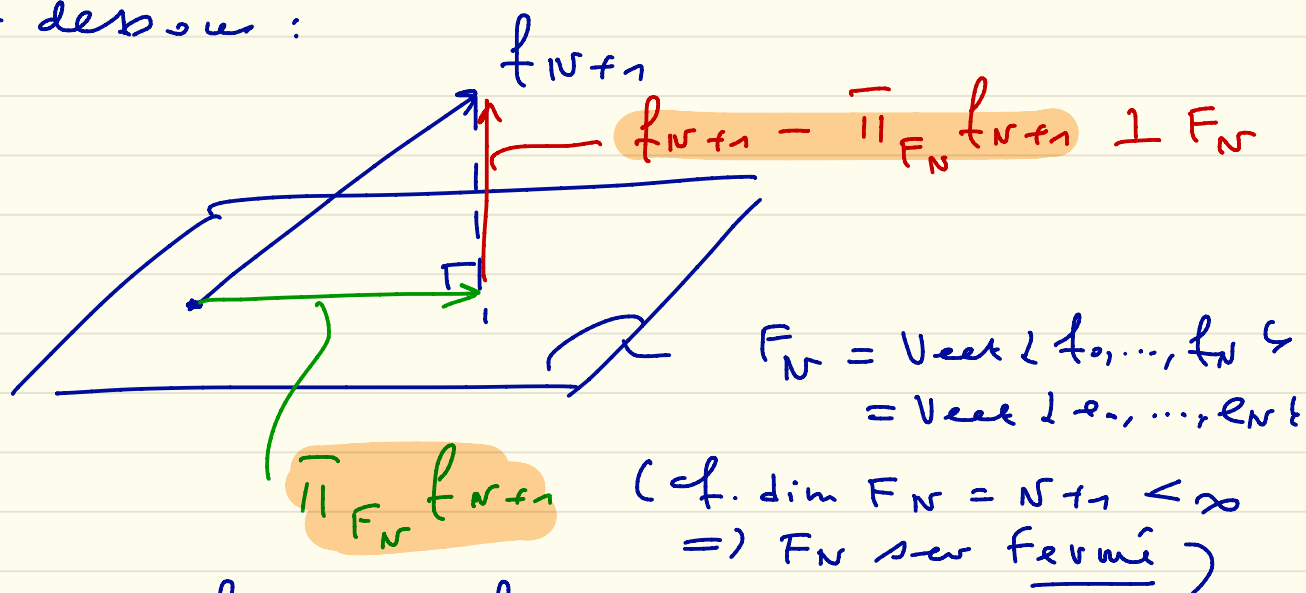 dessous :
f_{N+1}
f_{N+1} - Π_{F_N} f_{N+1} ⊥ F_N
F_N = Vect { f_0, ..., f_N }
= Vect { e_0, ..., e_N }
Π_{F_N} f_{N+1}
(cf. dim F_N = N+1 < ∞
=> F_N sev fermé)